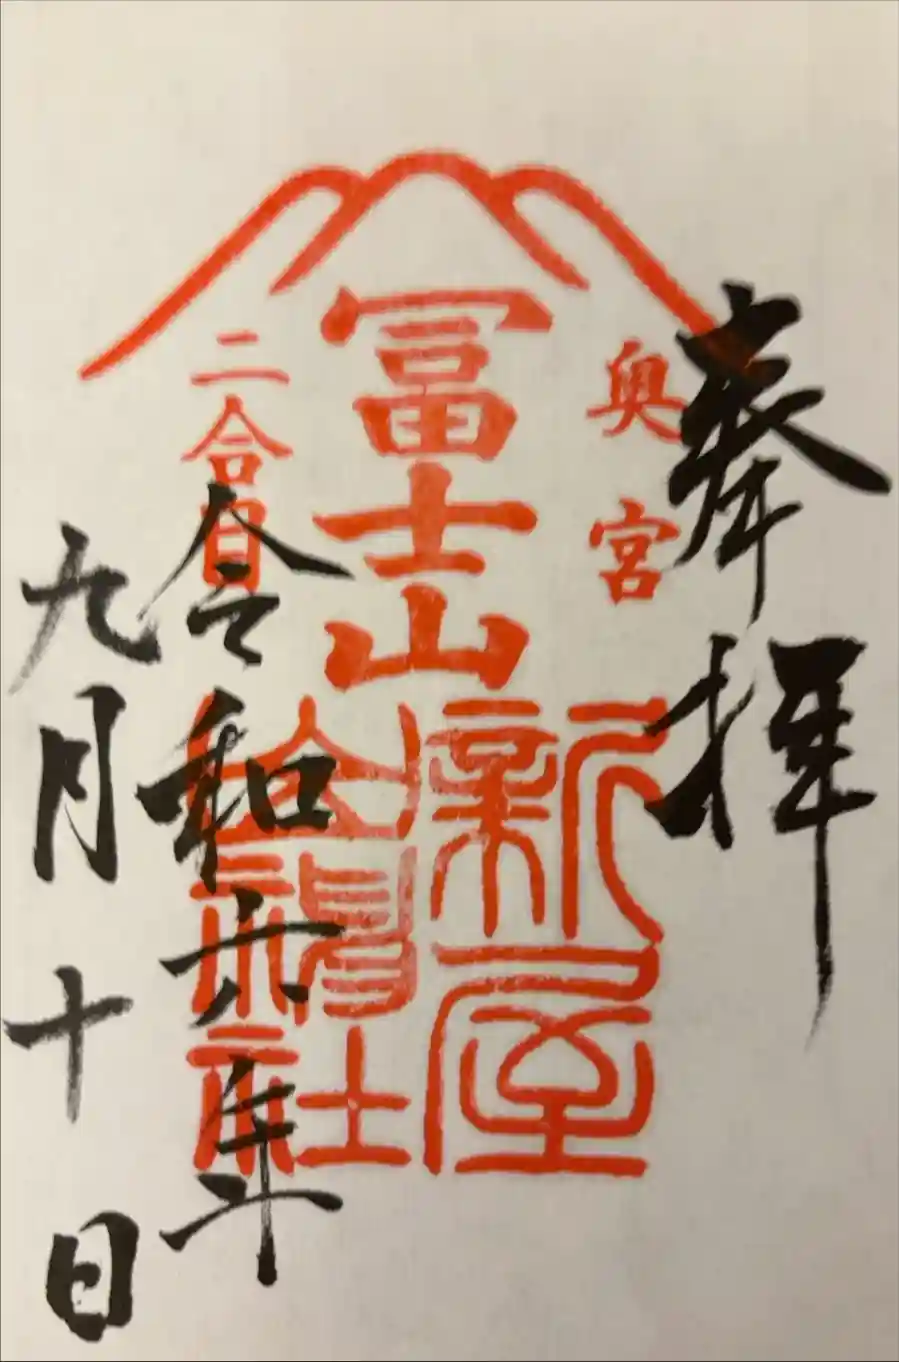 奉拝
奥宮
冨士山
新屋
山神社
二合目
令和六年
九月十日